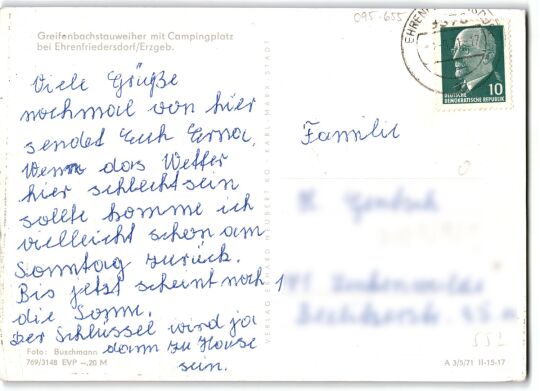 Greifenbachstauweiher mit Campingplatz
bei Ehrenfriedersdorf/Erzgeb.
Viele Grüße
nochmal von hier
sendet Euch Erna.
Wenn das Wetter
hier schlecht sein
sollte komme ich
vielleicht schon am
Sonntag zurück.
Bis jetzt scheint noch
die Sonne.
Der Schlüssel wird ja
dann zu Hause
sein.
Foto: Buschmann
769/3148 EVP -,20 M
095-655
10
DEUTSCHE
DEMOKRATISCHE REPUBLIK
Familie
A 3/5/71 II-15-17